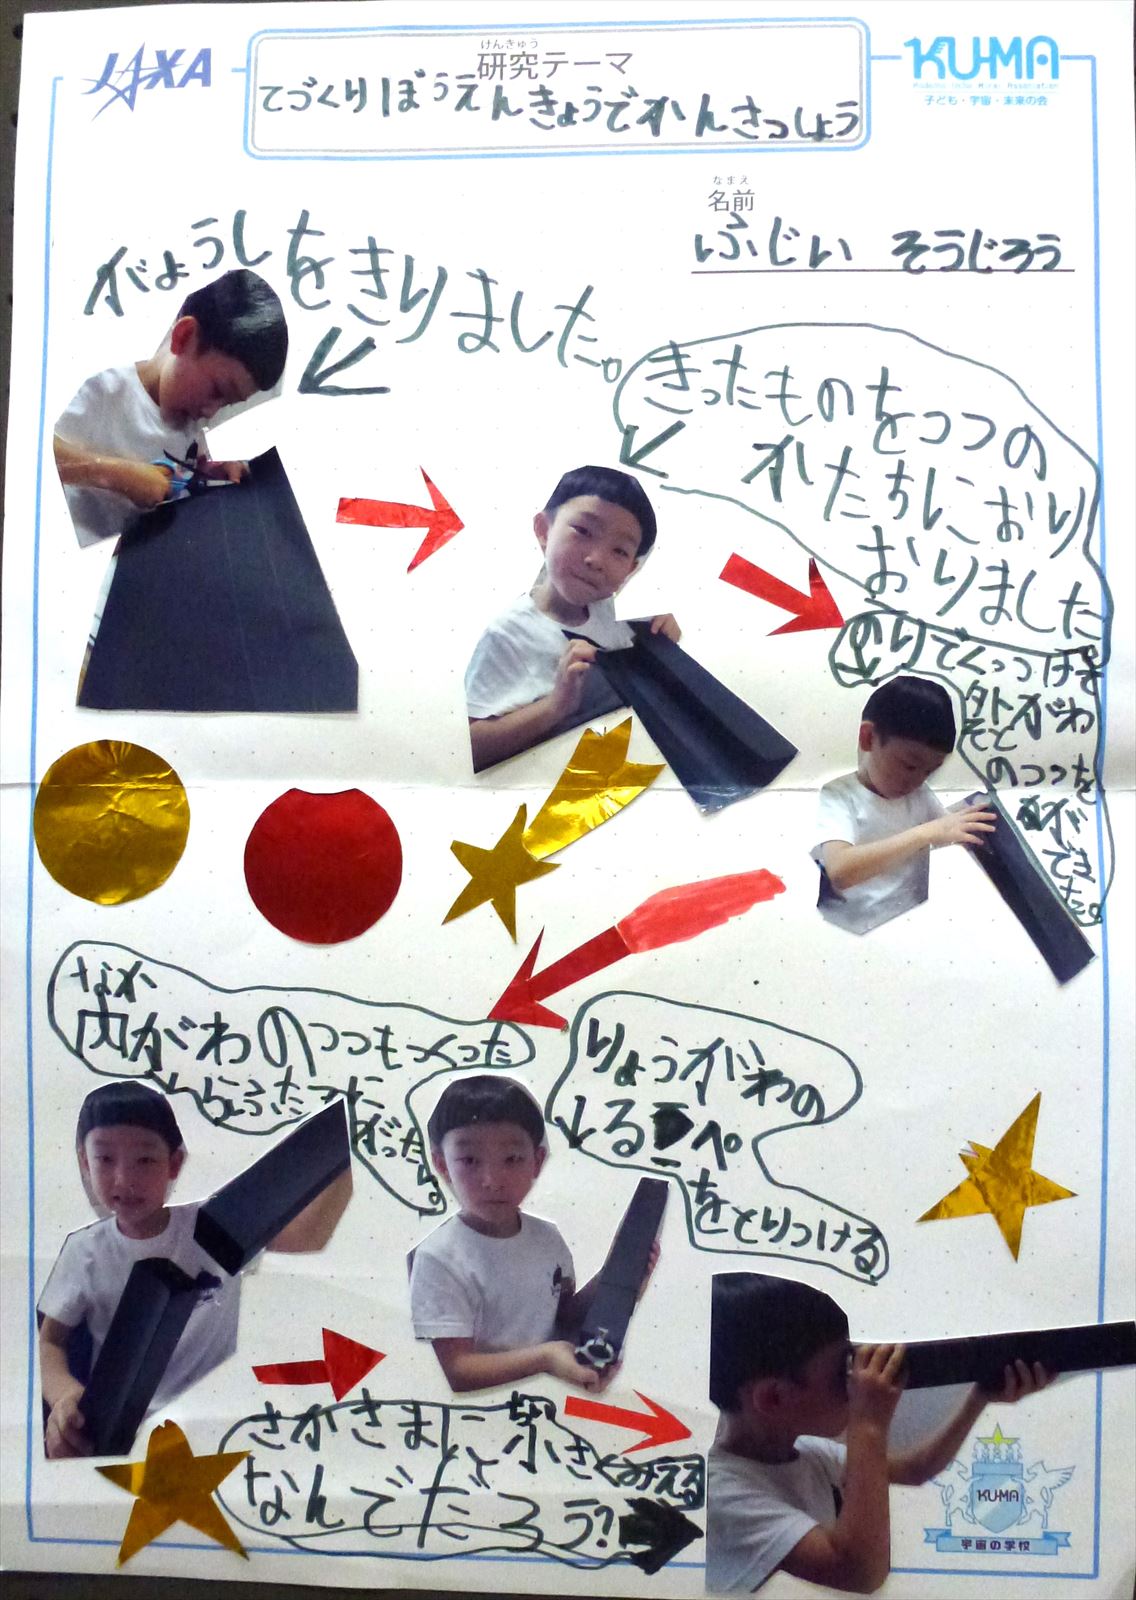 JAXA
けんきゅう
研究テーマ
てづくりぼうえんきょうでかんさつしょう
KU-MA
子ども・宇宙・未来の会
なまえ
名前
ふじい そうじろう
がようしをきりました。
きったものをつつの
かたちにおり
おりました
のりでくっつけ
外がわ
そと
のつつを
ができた。
なか
内がわのつつもつくった
りょうがわの
をとりつける
さかさまに
小さくみえる
なんでだろう?
KU-MA
宇宙の学校